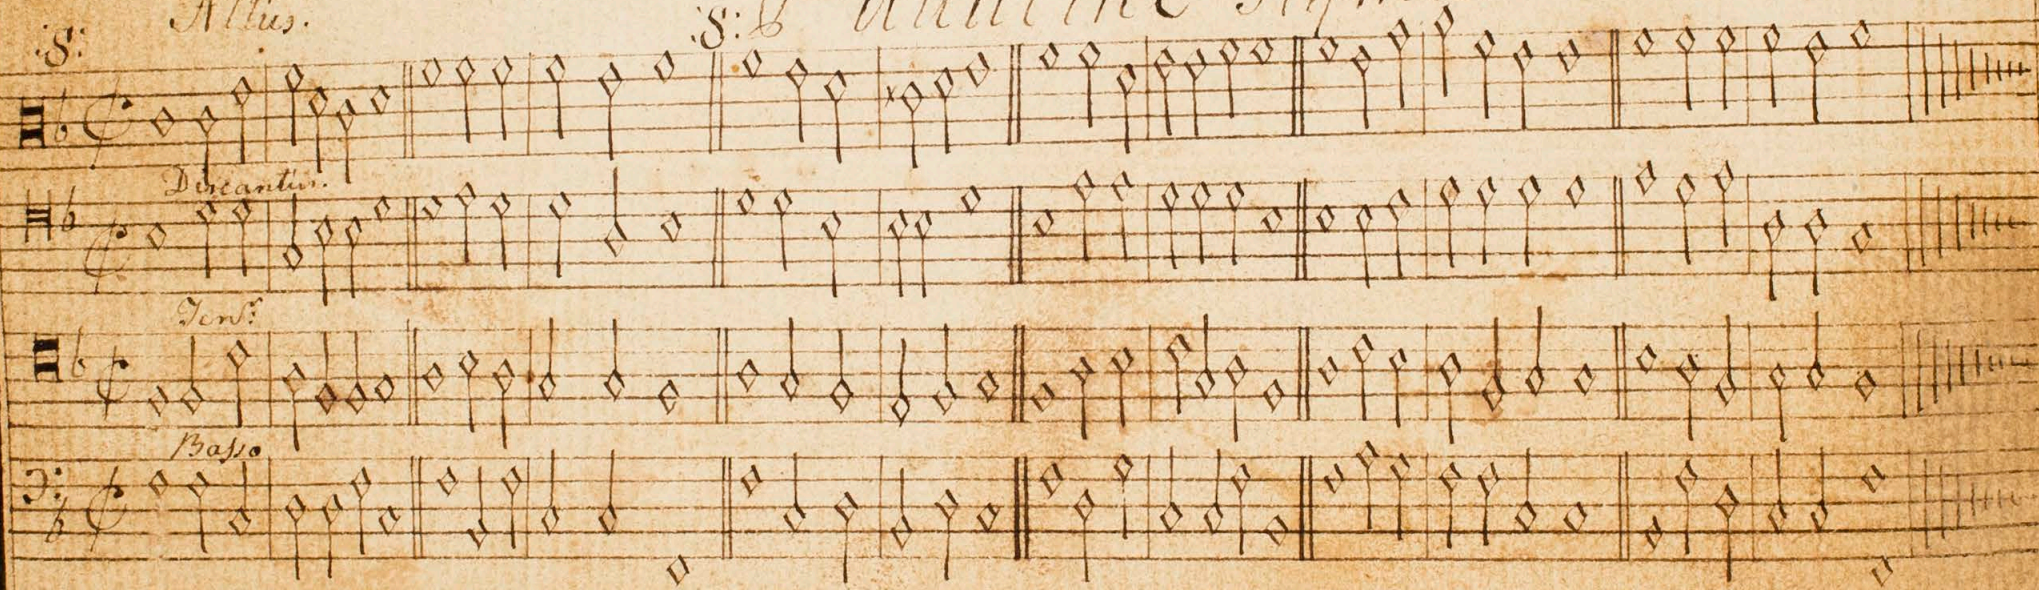 :S: Altus. :S:
Discantus.
Tenr.
Basso